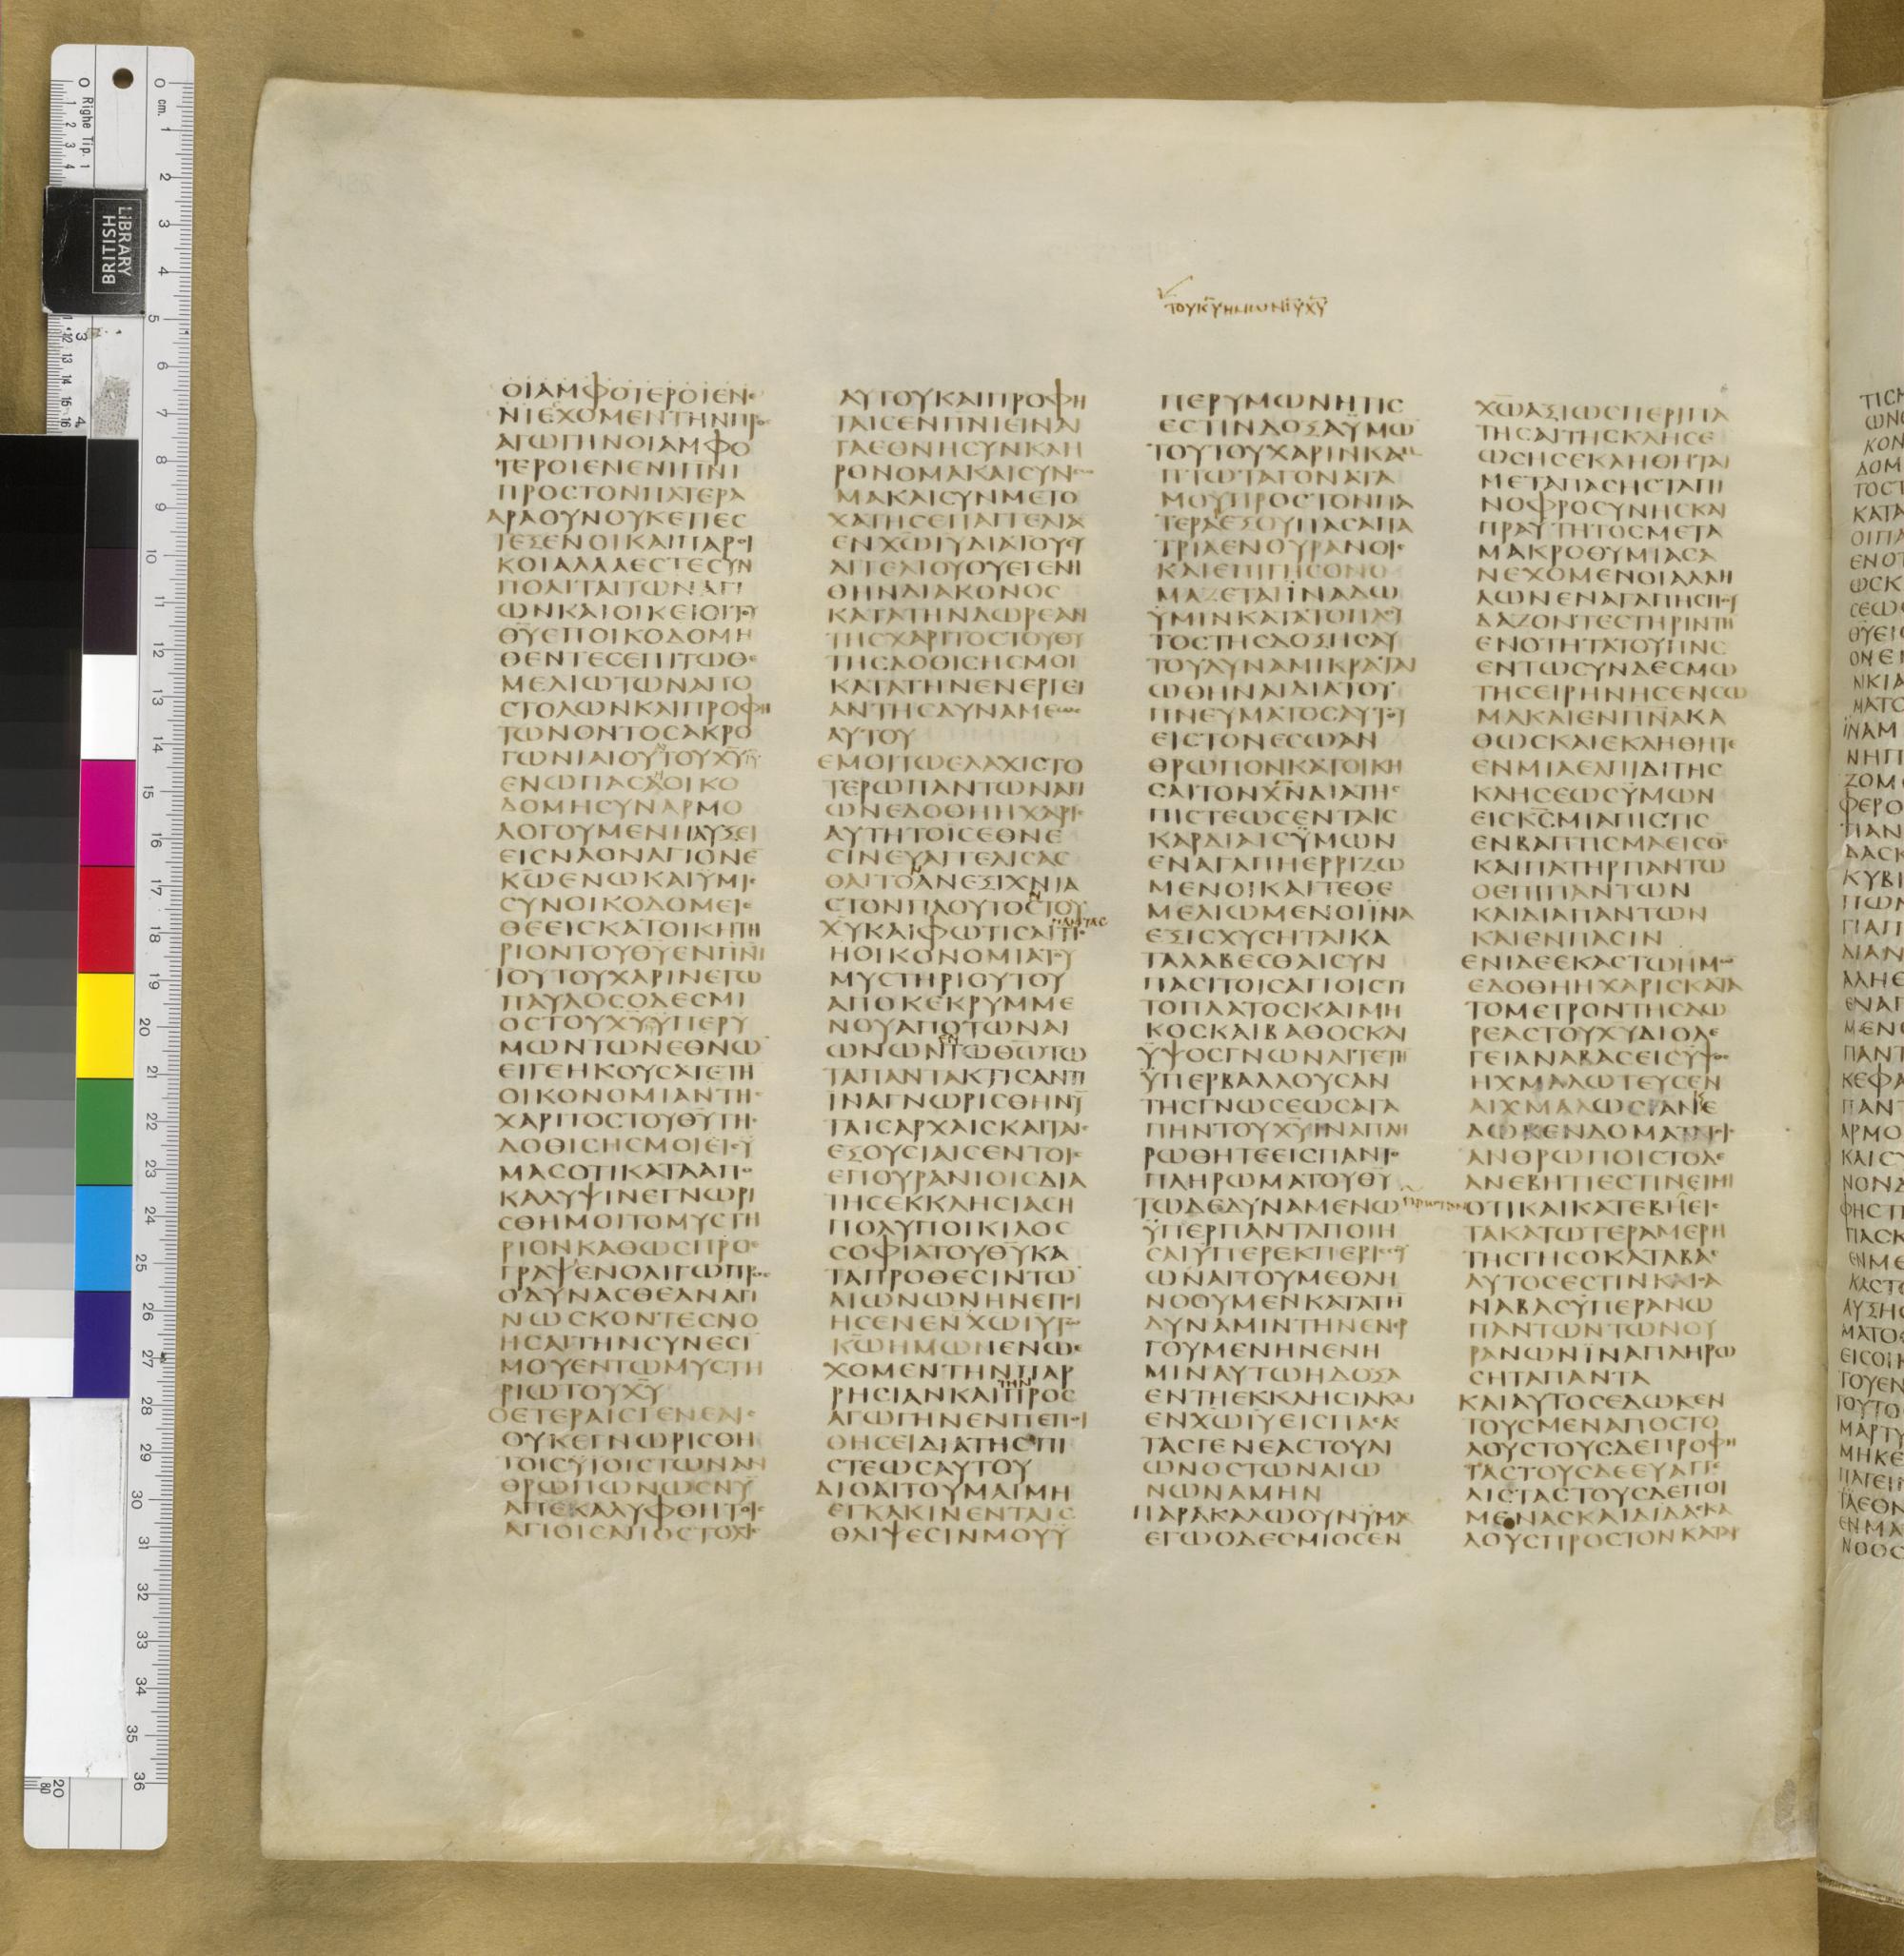 ΤΟΥΚΥΗΜΩΝΙΥΧΥ
ΟΙΑΜΦΟΤΕΡΟΙΕΝΕ
ΝΙΕΧΟΜΕΝΤΗΝΠΡΟ
ΑΓΩΓΗΝΟΙΑΜΦΟ
ΤΕΡΟΙΕΝΕΝΙΠΝΙ
ΠΡΟΣΤΟΝΠΑΤΕΡΑ
ΑΡΑΟΥΝΟΥΚΕΤΙΕΣ
ΤΕΞΕΝΟΙΚΑΙΠΑΡΟΙ
ΚΟΙΑΛΛΑΕΣΤΕΣΥΝ
ΠΟΛΙΤΑΙΤΩΝΑΓΙ
ΩΝΚΑΙΟΙΚΕΙΟΙΤΟΥ
ΘΥΕΠΟΙΚΟΔΟΜΗ
ΘΕΝΤΕΣΕΠΙΤΩΘΕ
ΜΕΛΙΩΤΩΝΑΠΟ
ΣΤΟΛΩΝΚΑΙΠΡΟΦΗ
ΤΩΝΟΝΤΟΣΑΚΡΟ
ΓΩΝΙΑΙΟΥΤΟΥΧΥ
ΕΝΩΠΑΣΑΟΙΚΟ
ΔΟΜΗΣΥΝΑΡΜΟ
ΛΟΓΟΥΜΕΝΗΑΥΞΕΙ
ΕΙΣΝΑΟΝΑΓΙΟΝΕ
ΚΩΕΝΩΚΑΙΥΜΙΣ
ΣΥΝΟΙΚΟΔΟΜΕΙΣ
ΘΕΕΙΣΚΑΤΟΙΚΗΤΗ
ΡΙΟΝΤΟΥΘΥΕΝΠΝΙ
ΤΟΥΤΟΥΧΑΡΙΝΕΓΩ
ΠΑΥΛΟΣΟΔΕΣΜΙ
ΟΣΤΟΥΧΥΥΠΕΡΥ
ΜΩΝΤΩΝΕΘΝΩ
ΕΙΓΕΗΚΟΥΣΑΤΕΤΗ
ΟΙΚΟΝΟΜΙΑΝΤΗΣ
ΧΑΡΙΤΟΣΤΟΥΘΥΤΗΣ
ΔΟΘΙΣΗΣΜΟΙΕΙΣΥ
ΜΑΣΟΤΙΚΑΤΑΑΠΟ
ΚΑΛΥΨΙΝΕΓΝΩΡΙ
ΣΘΗΜΟΙΤΟΜΥΣΤΗ
ΡΙΟΝΚΑΘΩΣΠΡΟΕ
ΓΡΑΨΕΝΟΛΙΓΩΠΡΟΣ
ΟΔΥΝΑΣΘΕΑΝΑΓΙ
ΝΩΣΚΟΝΤΕΣΝΟ
ΗΣΑΙΤΗΝΣΥΝΕΣΙ
ΜΟΥΕΝΤΩΜΥΣΤΗ
ΡΙΩΤΟΥΧΥ
ΟΕΤΕΡΑΙΣΓΕΝΕΑΙΣ
ΟΥΚΕΓΝΩΡΙΣΘΗ
ΤΟΙΣΥΙΟΙΣΤΩΝΑΝ
ΘΡΩΠΩΝΩΣΝΥ
ΑΠΕΚΑΛΥΦΘΗΤΟΙΣ
ΑΓΙΟΙΣΑΠΟΣΤΟΛΟΙΣ
ΑΥΤΟΥΚΑΙΠΡΟΦΗ
ΤΑΙΣΕΝΠΝΙΕΙΝΑΙ
ΤΑΕΘΝΗΣΥΝΚΛΗ
ΡΟΝΟΜΑΚΑΙΣΥΝΣΩ
ΜΑΚΑΙΣΥΝΜΕΤΟ
ΧΑΤΗΣΕΠΑΓΓΕΛΙΑΣ
ΕΝΧΩΙΥΔΙΑΤΟΥΕΥ
ΑΓΓΕΛΙΟΥΟΥΕΓΕΝΙ
ΘΗΝΔΙΑΚΟΝΟΣ
ΚΑΤΑΤΗΝΔΩΡΕΑΝ
ΤΗΣΧΑΡΙΤΟΣΤΟΥΘΥ
ΤΗΣΔΟΘΙΣΗΣΜΟΙ
ΚΑΤΑΤΗΝΕΝΕΡΓΕΙ
ΑΝΤΗΣΔΥΝΑΜΕΩΣ
ΑΥΤΟΥ
ΕΜΟΙΤΩΕΛΑΧΙΣΤΟ
ΤΕΡΩΠΑΝΤΩΝΑΓΙ
ΩΝΕΔΟΘΗΗΧΑΡΙΣ
ΑΥΤΗΤΟΙΣΕΘΝΕ
ΣΙΝΕΥΑΓΓΕΛΙΣΑΣ
ΘΑΙΤΟΑΝΕΞΙΧΝΙΑ
Ν
ΣΤΟΝΠΛΟΥΤΟΣΤΟΥ
Ν
ΧΥΚΑΙΦΩΤΙΣΑΙΤΙΣ
ΠΑΝΤΑΣ
ΗΟΙΚΟΝΟΜΙΑΤΟΥ
ΜΥΣΤΗΡΙΟΥΤΟΥ
ΑΠΟΚΕΚΡΥΜΜΕ
ΝΟΥΑΠΟΤΩΝΑΙ
ΩΝΩΝΤΩΘΩΤΩ
ΕΝ
ΤΑΠΑΝΤΑΚΤΙΣΑΝΤΙ
ΙΝΑΓΝΩΡΙΣΘΗΝΥ
ΤΑΙΣΑΡΧΑΙΣΚΑΙΤΑΙΣ
ΕΞΟΥΣΙΑΙΣΕΝΤΟΙΣ
ΕΠΟΥΡΑΝΙΟΙΣΔΙΑ
ΤΗΣΕΚΚΛΗΣΙΑΣΗ
ΠΟΛΥΠΟΙΚΙΛΟΣ
ΣΟΦΙΑΤΟΥΘΥΚΑ
ΤΑΠΡΟΘΕΣΙΝΤΩ
ΑΙΩΝΩΝΗΝΕΠΟΙ
ΗΣΕΝΕΝΧΩΙΥΤΩ
ΚΩΗΜΩΝΕΝΩΕ
ΧΟΜΕΝΤΗΝΠΑΡ
ΡΗΣΙΑΝΚΑΙΠΡΟΣ
ΤΗΝ
ΑΓΩΓΗΝΕΝΠΕΠΟΙ
ΘΗΣΕΙΔΙΑΤΗΣΠΙ
ΣΤΕΩΣΑΥΤΟΥ
ΔΙΟΑΙΤΟΥΜΑΙΜΗ
ΕΓΚΑΚΙΝΕΝΤΑΙΣ
ΘΛΙΨΕΣΙΝΜΟΥΥ
ΠΕΡΥΜΩΝΗΤΙΣ
ΕΣΤΙΝΔΟΞΑΫΜΩ
ΤΟΥΤΟΥΧΑΡΙΝΚΑΜ
ΠΤΩΤΑΓΟΝΑΤΑ
ΜΟΥΠΡΟΣΤΟΝΠΑ
ΤΕΡΑΕΞΟΥΠΑΣΑΠΑ
ΤΡΙΑΕΝΟΥΡΑΝΟΙΣ
ΚΑΙΕΠΙΓΗΣΟΝΟ
ΜΑΖΕΤΑΙΪΝΑΔΩ
ΫΜΙΝΚΑΤΑΤΟΠΛΟΥ
ΤΟΣΤΗΣΔΟΞΗΣΑΥ
ΤΟΥΔΥΝΑΜΙΚΡΑΤΑΙ
ΩΘΗΝΑΙΔΙΑΤΟΥ
ΠΝΕΥΜΑΤΟΣΑΥΤΟΥ
ΕΙΣΤΟΝΕΣΩΑΝ
ΘΡΩΠΟΝΚΑΤΟΙΚΗ
ΣΑΙΤΟΝΧΝΔΙΑΤΗΣ
ΠΙΣΤΕΩΣΕΝΤΑΙΣ
ΚΑΡΔΙΑΙΣΫΜΩΝ
ΕΝΑΓΑΠΗΕΡΡΙΖΩ
ΜΕΝΟΙΚΑΙΤΕΘΕ
ΜΕΛΙΩΜΕΝΟΙΪΝΑ
ΕΞΙΣΧΥΣΗΤΑΙΚΑ
ΤΑΛΑΒΕΣΘΑΙΣΥΝ
ΠΑΣΙΤΟΙΣΑΓΙΟΙΣΤΙ
ΤΟΠΛΑΤΟΣΚΑΙΜΗ
ΚΟΣΚΑΙΒΑΘΟΣΚΑΙ
ΫΨΟΣΓΝΩΝΑΙΤΕΤΗ
ΫΠΕΡΒΑΛΛΟΥΣΑΝ
ΤΗΣΓΝΩΣΕΩΣΑΓΑ
ΠΗΝΤΟΥΧΥΙΝΑΠΛΗ
ΡΩΘΗΤΕΕΙΣΠΑΝΤΟ
ΠΛΗΡΩΜΑΤΟΥΘΥ
ΤΩΔΕΔΥΝΑΜΕΝΩ
ΫΠΕΡΠΑΝΤΑΠΟΙΗ
ΣΑΙΥΠΕΡΕΚΠΕΡΙΣΣΟΥ
ΩΝΑΙΤΟΥΜΕΘΑΗ
ΝΟΟΥΜΕΝΚΑΤΑΤΗ
ΔΥΝΑΜΙΝΤΗΝΕΝΕΡ
ΓΟΥΜΕΝΗΝΕΝΗ
ΜΙΝΑΥΤΩΗΔΟΞΑ
ΕΝΤΗΕΚΚΛΗΣΙΑΚΑΙ
ΕΝΧΩΙΥΕΙΣΠΑΣΑΣ
ΤΑΣΓΕΝΕΑΣΤΟΥΑΙ
ΩΝΟΣΤΩΝΑΙΩ
ΝΩΝΑΜΗΝ
ΠΑΡΑΚΑΛΩΟΥΝΫΜΑΣ
ΕΓΩΟΔΕΣΜΙΟΣΕΝ
ΧΩΑΞΙΩΣΠΕΡΙΠΑ
ΤΗΣΑΙΤΗΣΚΛΗΣΕ
ΩΣΗΣΕΚΛΗΘΗΤΑΙ
ΜΕΤΑΠΑΣΗΣΤΑΠΙ
ΝΟΦΡΟΣΥΝΗΣΚΑΙ
ΠΡΑΥΤΗΤΟΣΜΕΤΑ
ΜΑΚΡΟΘΥΜΙΑΣΑ
ΝΕΧΟΜΕΝΟΙΑΛΛΗ
ΛΩΝΕΝΑΓΑΠΗΣΠΟΥ
ΔΑΖΟΝΤΕΣΤΗΡΙΝΤΗ
ΕΝΟΤΗΤΑΤΟΥΠΝΣ
ΕΝΤΩΣΥΝΔΕΣΜΩ
ΤΗΣΕΙΡΗΝΗΣΕΝΣΩ
ΜΑΚΑΙΕΝΠΝΑΚΑ
ΘΩΣΚΑΙΕΚΛΗΘΗΤΕ
ΕΝΜΙΑΕΛΠΙΔΙΤΗΣ
ΚΛΗΣΕΩΣΫΜΩΝ
ΕΙΣΚΣΜΙΑΠΙΣΤΙΣ
ΕΝΒΑΠΤΙΣΜΑΕΙΣΘΣ
ΚΑΙΠΑΤΗΡΠΑΝΤΩ
ΟΕΠΙΠΑΝΤΩΝ
ΚΑΙΔΙΑΠΑΝΤΩΝ
ΚΑΙΕΝΠΑΣΙΝ
ΕΝΙΔΕΕΚΑΣΤΩΗΜΩΝ
ΕΔΟΘΗΗΧΑΡΙΣΚΑΤΑ
ΤΟΜΕΤΡΟΝΤΗΣΔΩ
ΡΕΑΣΤΟΥΧΥΔΙΟΛΕ
ΓΕΙΑΝΑΒΑΣΕΙΣΥΨΟΣ
ΗΧΜΑΛΩΤΕΥΣΕΝ
ΑΙΧΜΑΛΩΣΙΑΝΕ
ΔΩΚΕΝΔΟΜΑΤΑΤΟΙΣ
ΑΝΘΡΩΠΟΙΣΤΟΔΕ
ΑΝΕΒΗΤΙΕΣΤΙΝΕΙΜΗ
ΟΤΙΚΑΙΚΑΤΕΒΗΕΙΣ
ΠΡΩΤΟΝ
ΤΑΚΑΤΩΤΕΡΑΜΕΡΗ
ΤΗΣΓΗΣΟΚΑΤΑΒΑΣ
ΑΥΤΟΣΕΣΤΙΝΚΑΙΟΑ
ΝΑΒΑΣΥΠΕΡΑΝΩ
ΠΑΝΤΩΝΤΩΝΟΥ
ΡΑΝΩΝΪΝΑΠΛΗΡΩ
ΣΗΤΑΠΑΝΤΑ
ΚΑΙΑΥΤΟΣΕΔΩΚΕΝ
ΤΟΥΣΜΕΝΑΠΟΣΤΟ
ΛΟΥΣΤΟΥΣΔΕΠΡΟΦΗ
ΤΑΣΤΟΥΣΔΕΕΥΑΓΓΕ
ΛΙΣΤΑΣΤΟΥΣΔΕΠΟΙ
ΜΕΝΑΣΚΑΙΔΙΔΑΣΚΑ
ΛΟΥΣΠΡΟΣΤΟΝΚΑΤΑΡ
LIBRARY
BRITISH